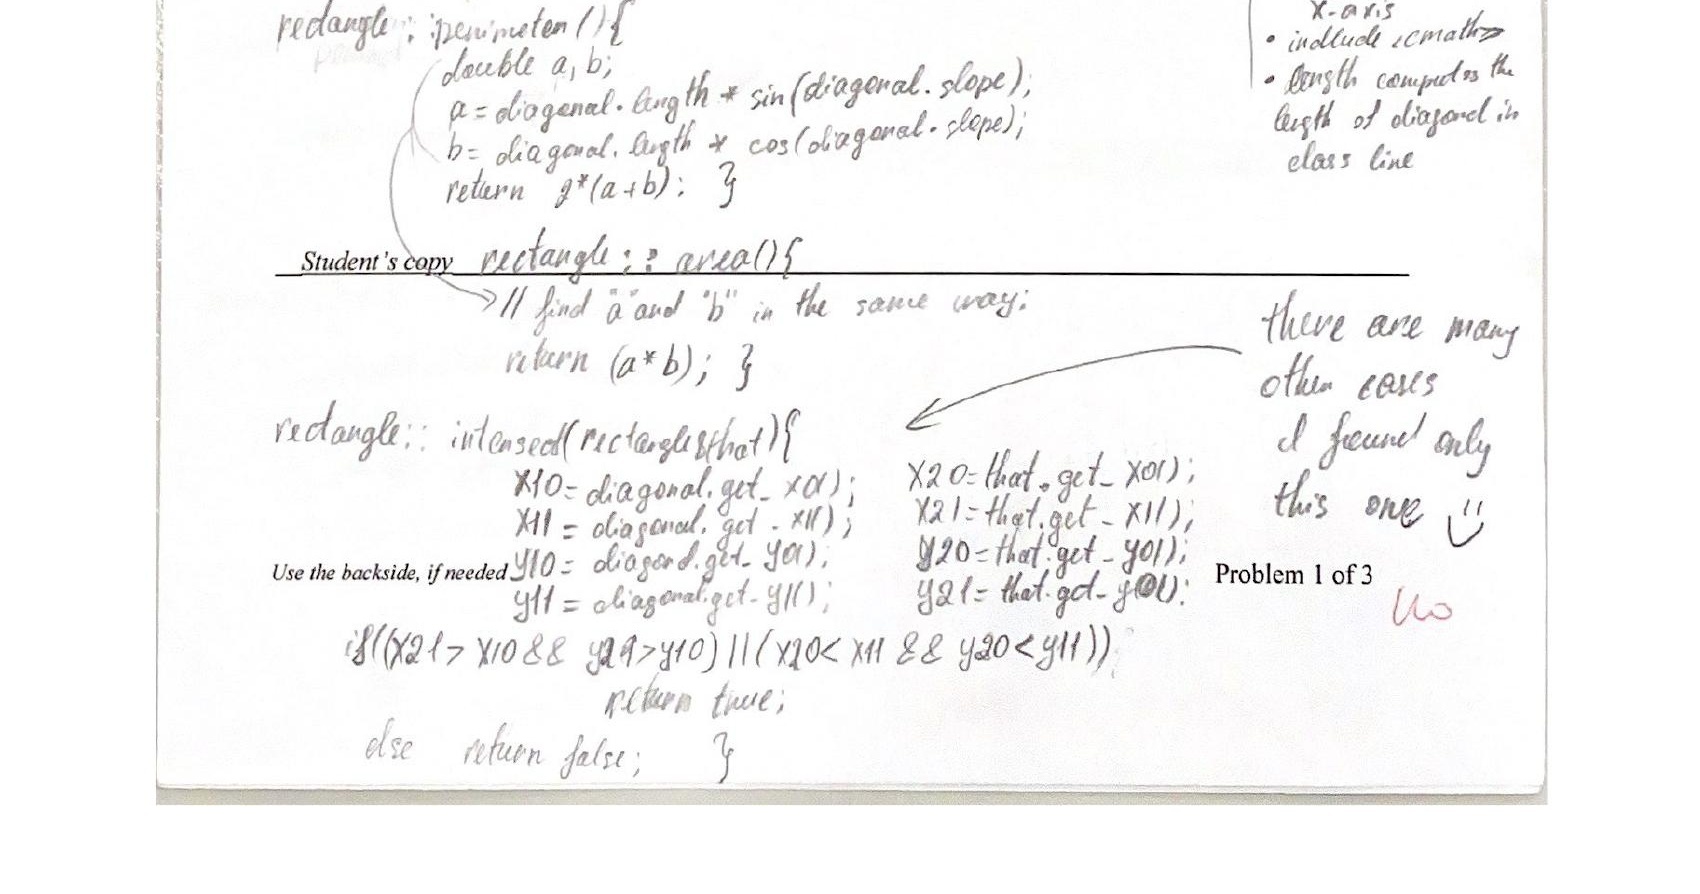 rectangle :: perimeter(){
double a, b;
a = diagonal.length * sin(diagonal.slope);
b = diagonal.length * cos(diagonal.slope);
return 2*(a+b); }
x-axis
• indlude <cmath>
• length computes the
length of diagonal in
class line
Student's copy rectangle :: area(){
// find "a" and "b" in the same way:
return (a*b); }
there are many
other cases
I found only
this one
rectangle:: intersect(rectangle&that){
x10 = diagonal.get_x0(); x20 = that.get_x0();
x11 = diagonal.get_x1(); x21 = that.get_x1();
y10 = diagonal.get_y0(); y20 = that.get_y0();
Use the backside, if needed Problem 1 of 3
y11 = diagonal.get_y1(); y21 = that.get_y1();
No
if((x21 > x10 && y21 > y10) || (x20 < x11 && y20 < y11))
return true;
else return false; }